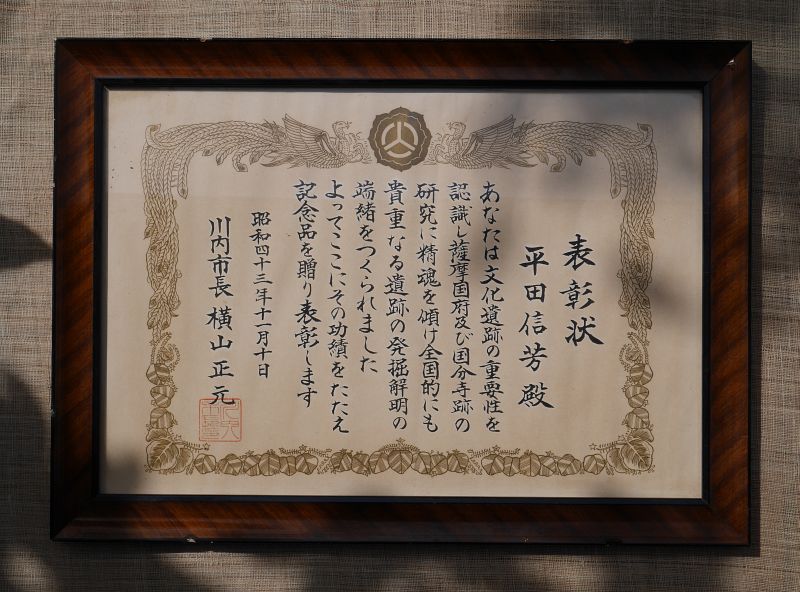 表彰状
平田信芳殿
あなたは文化遺跡の重要性を
認識し薩摩国府及び国分寺跡の
研究に精魂を傾け全国的にも
貴重なる遺跡の発掘解明の
端緒をつくられました
よってここにその功績をたたえ
記念品を贈り表彰します
昭和四十三年十一月十日
川内市長 横山正元